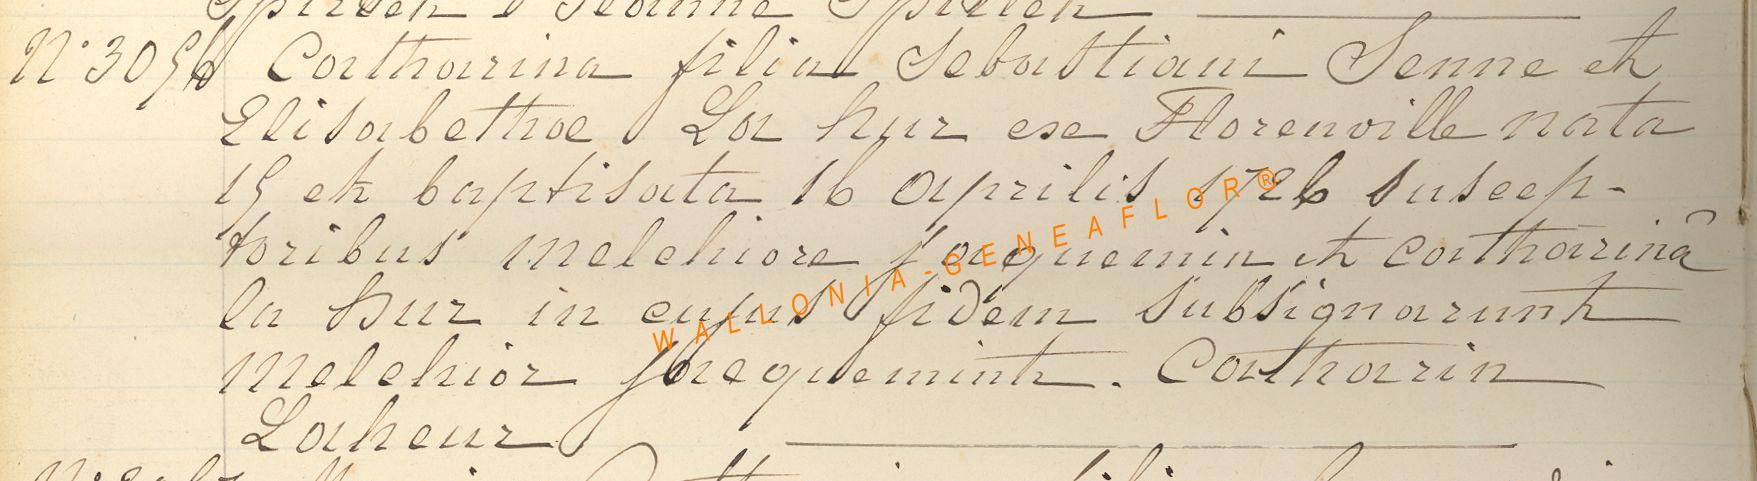 Spirlet & Jeanne Spirlet
N° 3056 Catharina filia Sebastiani Senne et
Elisabethae La hur ex Florenville nata
15 et baptisata 16 aprilis 1726 suscep-
toribus melchiore jacquemin et catharinā
la hur in cujus fidem subsignarunt
melchior jacquemint. Catharin
Laheur
WALLONIA-GENEAFLOR®